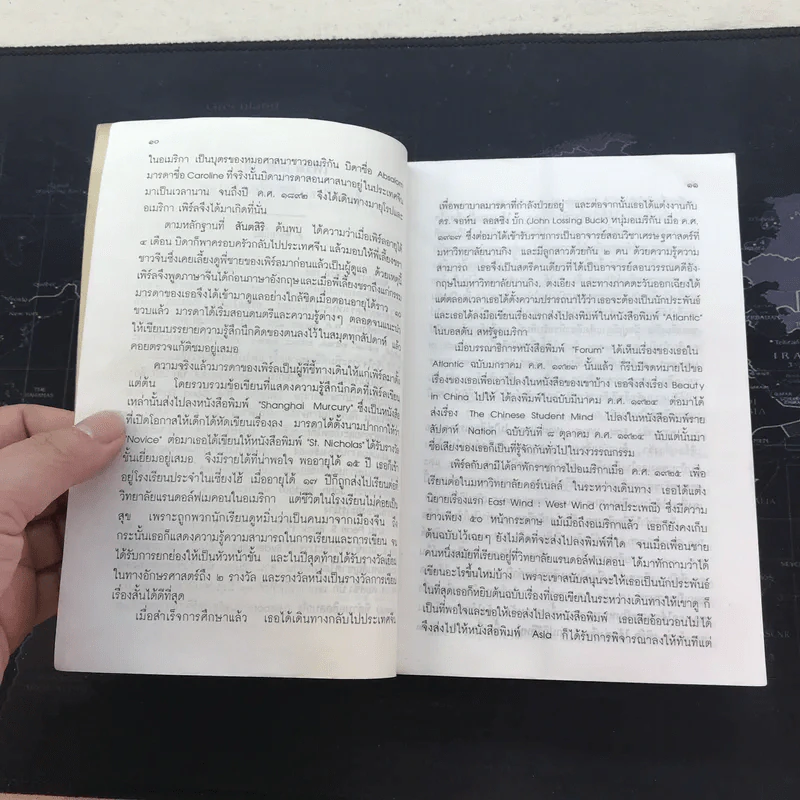 ๑๐
ในอเมริกา เป็นบุตรของหมอศาสนาชาวอเมริกัน บิดาชื่อ Absalom
มารดาชื่อ Caroline ที่จริงนั้นบิดามารดาสอนศาสนาอยู่ในประเทศจีน
มาเป็นเวลานาน จนถึงปี ค.ศ. ๑๘๙๒ จึงได้เดินทางมายุโรปและ
อเมริกา เพิร์ลจึงได้มาเกิดที่นั่น
ตามหลักฐานที่ สันตสิริ ค้นพบ ได้ความว่าเมื่อเพิร์ลอายุได้
๔ เดือน บิดาก็พาครอบครัวกลับไปประเทศจีน แล้วมอบให้พี่เลี้ยงชรา
ชาวจีนซึ่งเคยเลี้ยงดูพี่ชายของเพิร์ลมาก่อนแล้วเป็นผู้ดูแล ด้วยเหตุนี้
เพิร์ลจึงพูดภาษาจีนได้ก่อนภาษาอังกฤษ และเมื่อพี่เลี้ยงชราถึงแก่กรรม
มารดาของเธอจึงได้เข้ามาดูแลอย่างใกล้ชิดเมื่อตอนอายุได้ราว ๑๐
ขวบแล้ว มารดาได้เริ่มสอนดนตรีและความรู้ต่างๆ ตลอดจนแนะนำ
ให้เขียนบรรยายความรู้สึกนึกคิดของตนลงไว้ในสมุดทุกสัปดาห์ แล้ว
คอยตรวจแก้ติชมอยู่เสมอ
ความจริงแล้วมารดาของเพิร์ลเป็นผู้ที่ชี้ทางเดินให้แก่เพิร์ลมาตั้ง
แต่ต้น โดยรวบรวมข้อเขียนที่แสดงความรู้สึกนึกคิดที่เพิร์ลเขียน
เหล่านั้นส่งไปลงหนังสือพิมพ์ "Shanghai Murcury" ซึ่งเป็นหนังสือ
ที่เปิดโอกาสให้เด็กได้หัดเขียนเรื่องลง มารดาได้ตั้งนามปากกาให้ว่า
"Novice" ต่อมาเธอได้เขียนให้หนังสือพิมพ์ "St. Nicholas" ได้รางวัล
ชั้นเยี่ยมอยู่เสมอ จึงมีรายได้ที่น่าพอใจ พออายุได้ ๑๕ ปี เธอก็เข้า
อยู่โรงเรียนประจำในเซี่ยงไฮ้ เมื่ออายุได้ ๑๗ ปีก็ถูกส่งไปเรียนต่อที่
วิทยาลัยแรนดอล์ฟเมคอนในอเมริกา แต่ชีวิตในโรงเรียนไม่ค่อยเป็น
สุข เพราะถูกพวกนักเรียนดูหมิ่นว่าเป็นคนมาจากเมืองจีน ถึง
กระนั้นเธอก็แสดงความรู้ความสามารถในการเรียนและการเขียน จน
ได้รับการยกย่องให้เป็นหัวหน้าชั้น และในปีสุดท้ายได้รับรางวัลเขียน
ในทางอักษรศาสตร์ถึง ๒ รางวัล และรางวัลหนึ่งเป็นรางวัลการเขียน
เรื่องสั้นได้ดีที่สุด
เมื่อสำเร็จการศึกษาแล้ว เธอได้เดินทางกลับไปประเทศจีน
๑๑
เพื่อพยาบาลมารดาที่กำลังป่วยอยู่ และต่อจากนั้นเธอได้แต่งงานกับ
ดร. จอห์น ลอสซิง บั๊ก (John Lossing Buck) หนุ่มอเมริกัน เมื่อ ค.ศ.
๑๙๑๗ ซึ่งต่อมาได้เข้ารับราชการเป็นอาจารย์สอนวิชาเศรษฐศาสตร์ที่
มหาวิทยาลัยนานกิง และมีลูกสาวด้วยกัน ๒ คน ด้วยความรู้ความ
สามารถ เธอจึงเป็นสตรีคนเดียวที่ได้เป็นอาจารย์สอนวรรณคดีอัง-
กฤษในมหาวิทยาลัยนานกิง, ตงเอียง และทางภาคตะวันออกเฉียงใต้
แต่ตลอดเวลาเธอได้ตั้งความปรารถนาไว้ว่า เธอจะต้องเป็นนักประพันธ์
และเธอได้ลงมือเขียนเรื่องแรกส่งไปลงพิมพ์ในหนังสือพิมพ์ "Atlantic"
ในบอสตัน สหรัฐอเมริกา
เมื่อบรรณาธิการหนังสือพิมพ์ "Forum" ได้เห็นเรื่องของเธอใน
Atlantic ฉบับมกราคม ค.ศ. ๑๙๒๓ นั้นแล้ว ก็รีบมีจดหมายไปขอ
เรื่องของเธอเพื่อเอาไปลงในหนังสือของเขาบ้าง เธอจึงส่งเรื่อง Beauty
in China ไปให้ ได้ลงพิมพ์ในฉบับมีนาคม ค.ศ. ๑๙๒๔ ต่อมาได้
ส่งเรื่อง The Chinese Student Mind ไปลงในหนังสือพิมพ์ราย
สัปดาห์ Nation ฉบับวันที่ ๘ ตุลาคม ค.ศ. ๑๙๒๔ นับแต่นั้นมา
ชื่อเสียงของเธอก็เป็นที่รู้จักกันทั่วไปในวงวรรณกรรม
เพิร์ลกับสามีได้ลาพักราชการไปอเมริกาเมื่อ ค.ศ. ๑๙๒๕ เพื่อ
เรียนต่อในมหาวิทยาลัยคอร์เนลล์ ในระหว่างเดินทาง เธอได้แต่ง
นิยายเรื่องแรก East Wind : West Wind (ทาสประเพณี) ซึ่งมีความ
ยาวเพียง ๕๐ หน้ากระดาษ แม้เมื่อถึงอเมริกาแล้ว เธอก็ยังคงเก็บ
ต้นฉบับไว้เฉยๆ ยังไม่คิดที่จะส่งไปลงพิมพ์ที่ใด จนเมื่อเพื่อนชาย
คนหนึ่งสมัยที่เรียนอยู่ที่วิทยาลัยแรนดอล์ฟเมคอน ได้มาทักถามว่าได้
เขียนอะไรขึ้นใหม่บ้าง เพราะเขาสนับสนุนจะให้เธอเป็นนักประพันธ์
ในที่สุดเธอก็หยิบต้นฉบับเรื่องที่เธอเขียนในระหว่างเดินทางให้เขาดู ก็
เป็นที่พอใจและขอให้เธอส่งไปลงหนังสือพิมพ์ เธอเสียอ้อนวอนไม่ได้
จึงส่งไปให้หนังสือพิมพ์ Asia ก็ได้รับการพิจารณาลงให้ทันทีแต่